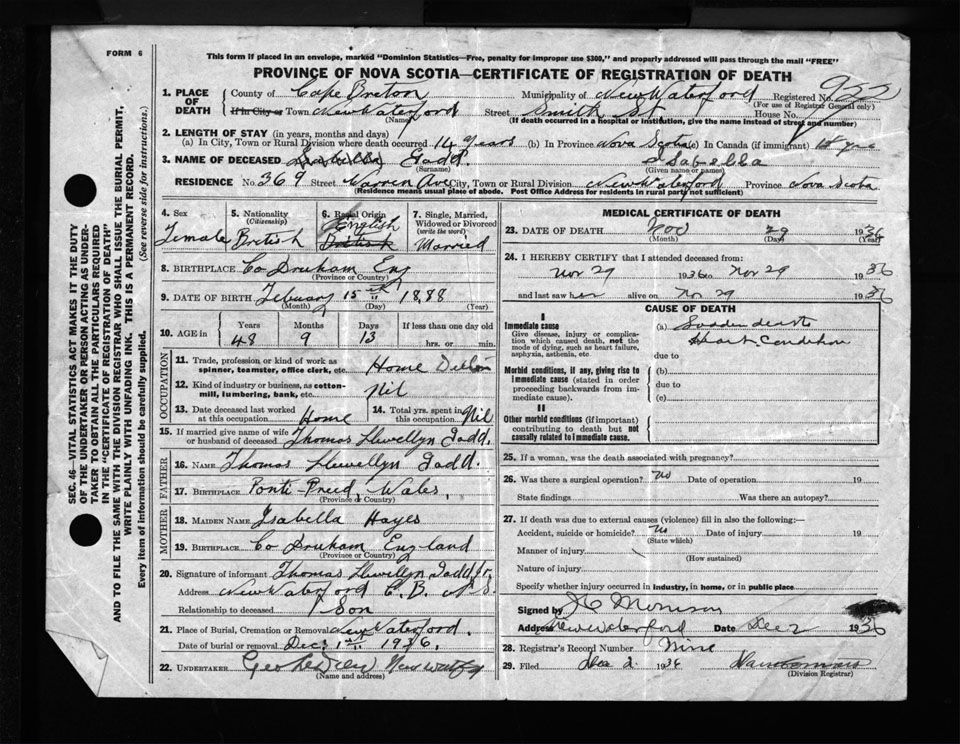 FORM 6
This form if placed in an envelope, marked "Dominion Statistics—Free, penalty for improper use $300," and properly addressed will pass through the mail "FREE"
PROVINCE OF NOVA SCOTIA—CERTIFICATE OF REGISTRATION OF DEATH
1. PLACE OF DEATH County of Cape Breton Municipality of New Waterford Registered No. 952
(For use of Registrar General only)
If in City or Town New Waterford Street Smith St House No.
(Name) (If death occurred in a hospital or institution, give the name instead of street and number)
2. LENGTH OF STAY (in years, months and days)
(a) In City, Town or Rural Division where death occurred 14 years (b) In Province Nova Scotia (c) In Canada (if immigrant)
3. NAME OF DECEASED Isabella Gadd. Isabella
(Surname) (Given name or names)
RESIDENCE No. 369 Street Warren Ave City, Town or Rural Division New Waterford Province Nova Scotia
(Residence means usual place of abode. Post Office Address for residents in rural parts not sufficient)
4. Sex Female
5. Nationality (Citizenship) British
6. Racial Origin English British
7. Single, Married, Widowed or Divorced (write the word) Married
8. BIRTHPLACE Co Druham Eng
(Province or Country)
9. DATE OF BIRTH Febuary 15th 1888
(Month) (Day) (Year)
10. AGE in Years 48 Months 9 Days 13 If less than one day old hrs. or min.
OCCUPATION
11. Trade, profession or kind of work as spinner, teamster, office clerk, etc. Home
12. Kind of industry or business, as cotton-mill, lumbering, bank, etc. Nil
13. Date deceased last worked at this occupation Home 14. Total yrs. spent in this occupation Nil
15. If married give name of wife or husband of deceased Thomas Llewellyn Gadd.
FATHER
16. NAME Thomas Llewellyn Gadd.
17. BIRTHPLACE Ponti-Preed, Wales,
(Province or Country)
MOTHER
18. MAIDEN NAME Isabella Hayes
19. BIRTHPLACE Co Druham England
(Province or Country)
20. Signature of informant Thomas Llewellyn Gadd Jr.
Address New Waterford C.B. N.S.
Relationship to deceased Son
21. Place of Burial, Cremation or Removal New Waterford.
Date of burial or removal Dec. 1st 1936.
22. UNDERTAKER Geo New Waterford
(Name and address)
MEDICAL CERTIFICATE OF DEATH
23. DATE OF DEATH Nov 29 1936
(Month) (Day) (Year)
24. I HEREBY CERTIFY that I attended deceased from:
Nov 29 1936 to Nov 29 1936
and last saw her alive on Nov 29 1936
CAUSE OF DEATH
I
Immediate cause (a) Sudden death
Give disease, injury or complication which caused death, not the mode of dying, such as heart failure, asphyxia, asthenia, etc. Heart Condition
due to
Morbid conditions, if any, giving rise to immediate cause (stated in order proceeding backwards from immediate cause). (b)
due to
(c)
II
Other morbid conditions (if important) contributing to death but not causally related to immediate cause.
25. If a woman, was the death associated with pregnancy?
26. Was there a surgical operation? No Date of operation 19
State findings Was there an autopsy?
27. If death was due to external causes (violence) fill in also the following:—
Accident, suicide or homicide? No Date of injury 19
(State which)
Manner of injury
(How sustained)
Nature of injury
Specify whether injury occurred in industry, in home, or in public place
Signed by J C Morrison
Address New Waterford Date Dec 2 1936
28. Registrar's Record Number Nine
29. Filed Dec 2. 1936
(Division Registrar)
SEC. 46—VITAL STATISTICS ACT MAKES IT THE DUTY
OF THE UNDERTAKER OR PERSON ACTING AS UNDERTAKER TO OBTAIN ALL THE PARTICULARS REQUIRED
IN THE "CERTIFICATE OF REGISTRATION OF DEATH"
AND TO FILE THE SAME WITH THE DIVISION REGISTRAR WHO SHALL ISSUE THE BURIAL PERMIT.
WRITE PLAINLY WITH UNFADING INK. THIS IS A PERMANENT RECORD.
Every item of Information should be carefully supplied. (See reverse side for instructions.)